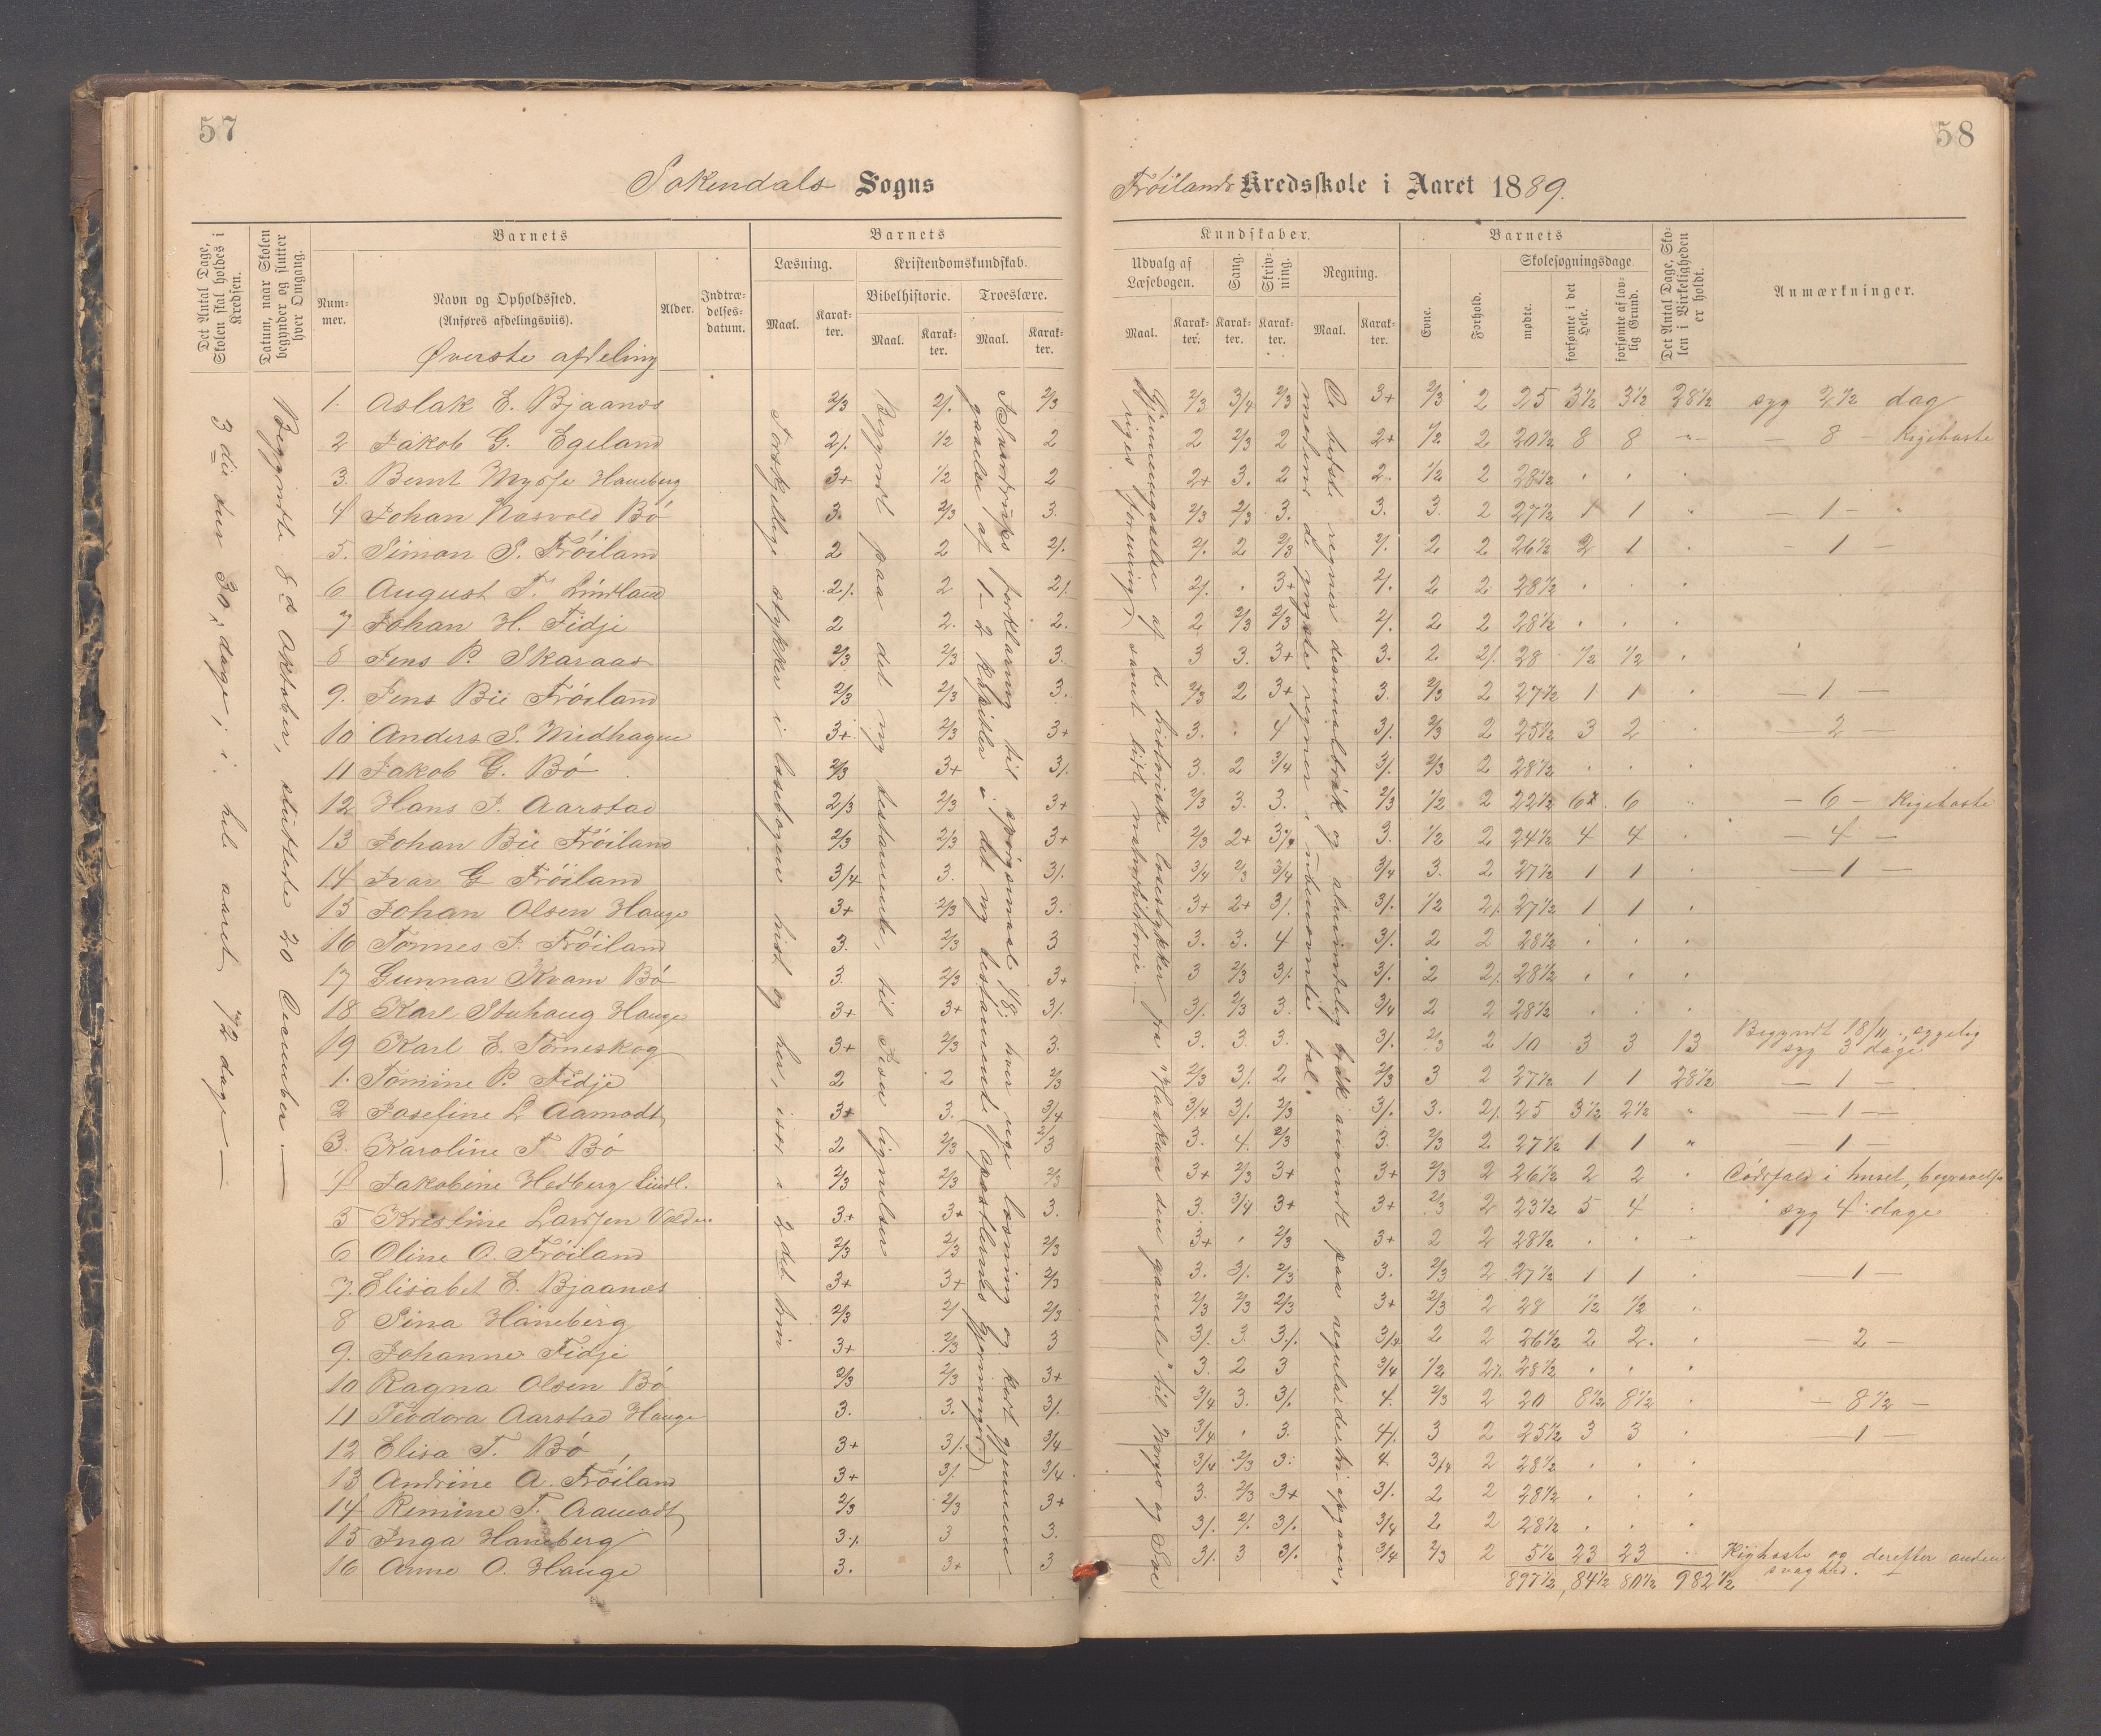 57
58
Sokendals Sogns
Frøilands Kredsskole i Aaret 1889.
Det Antal Dage, Skolen skal holdes i Kredsen.
Datum, naar Skolen begynder og slutter hver Omgang.
Barnets
Nummer.
Navn og Opholdssted.
(Anføres afdelingsviis).
Alder.
Indtrædelsesdatum.
Barnets
Læsning.
Maal.
Karakter.
Kristendomskundskab.
Bibelhistorie.
Maal.
Karakter.
Troeslære.
Maal.
Karakter.
Kundskaber.
Udvalg af Læsebogen.
Maal.
Karakter.
Sang.
Karakter.
Skrivning.
Karakter.
Regning.
Maal.
Karakter.
Barnets
Evne.
Forhold.
Skolesøgningsdage
mødte.
forsømte i det Hele.
forsømte af lovlig Grund.
Det Antal Dage, Skolen i Virkeligheden er holdt.
Anmærkninger.
Øverste afdeling
3die sur 30, dage, i hele aaret 72 dage —
Begyndte 8d Oktober, sluttede 20 December. —
Forskjellige stykker i læsebogen hist og her, især i 2det trin
Begyndt paa det ny testamente, til Jesu lignelser
Sverdrups forklaring til spørgsmaal 48, hver uge læsning og kort gjennemgaaelse af 1-2 kapitler i det ny testamente (apostlernes gjerninger)
Gjennemgaaelse af de historiske læsestykker fra "Haakon den gamle" til Norges og Sveriges forening, samt lidt naturhistorie. —
De bedste regner desimalbrøk og almindelig brøk anvendt paa reguladetri-opgaver, medens de yngste regner i ubenævnte tal.
1. Aslak E. Bjaanes 2/3 2/. 2/3 2/3 3/4 2/3 3+ 2/3 2 25 3½ 3½ 28½ syg 2½ dag
2 Jakob G. Egeland 2/. 1/2 2 2 2/3 2 2+ 1/2 2 20½ 8 8 " — 8 — Kighoste
3. Bernt Mysse Haneberg 3+ 1/2 2 2+ 3. 2 2. 1/2 2 28½ . .
4 Johan Nasvold Bö 3. 2/3 3. 2/3 2/3 3. 3. 3. 2 27½ 1 1 " — 1 — "
5. Simon S. Fröiland 2 2 2/. 2/. 2 2/3 2/. 2 2 26½ 2 1 . — 1 —
6 August T. Lindland 2/. 2 2/. 2/. . 3+ 2/. 2 2 28½ . . .
7 Johan H. Fidje 2 2. 2. 2 2/3 2/3 2/. 2 2 28½ . . .
8 Jens P. Skaraas 2/3 2/3 3. 3 3. 3+ 3. 2 2/. 28 ½ ½ .
9. Jens Bie Fröiland 2/3 2/3 3. 2/3 2 3+ 3. 2/3 2 27½ 1 1 . — 1 —
10 Anders S. Midhagen 3+ 2/3 3+ 3. . 4 3/. 2/3 2 25½ 3 2 . — 2 —
11 Jakob G. Bö 2/3 3+ 3/. 3. 2 3/4 3/. 2/3 2 28½ . . .
12 Hans J. Aarstad 2/3 2/3 3+ 2/3 3. 3. 2/3 1/2 2 22½ 6 6 " — 6 — Kighoste
13 Johan Bie Fröiland 2/3 2/3 3+ 2/3 2+ 3/4 3. 1/2 2 24½ 4 4 . — 4 —
14 Ivar G Fröiland 3/4 3. 3/. 3/4 2/3 3/4 3/4 3. 2 27½ 1 1 . — 1 —
15 Johan Olsen Hauge 3+ 2/3 3. 3+ 2+ 3/. 3/. 1/2 2/. 27½ 1 1 .
16 Tönnes J. Fröiland 3. 2/3 3 3. 3. 4 3/. 2 2 28½ . . .
17 Gunnar Kvam Bö 3. 2/3 3+ 3 2/3 3/. 3/. 2 2/. 28½ . . .
18 Karl Stuhaug Hauge 3+ 3+ 3/. 3/. 2/3 3. 3/4 2 2 28½ . . .
19 Karl E. Törneskog 3+ 2/3 3. 3. 3. 3. 3/. 2/3 2 10 3 3 13 Begyndt 18/11, syg 3 dage
1. Tomine P. Fidje 2 2 2/3 2/3 3/. 2 2/3 3 2 27½ 1 1 28½ — 1 —
2 Josefine L Aamodt 3+ 3. 3/4 3/4 3/. 2/3 3/. 3. 2/. 25 3½ 2½ " — 1 —
3. Karoline T. Bö 2 2/3 2/3 3. 4. 2/3 3. 2/3 2 27½ 1 1 " — 1 —
4 Jakobine Hedberg Lindl. 2/3 2/3 2/3 3+ 2/3 3+ 3+ 2/3 2 26½ 2 2 . Dödsfald i huset, begravelse
5 Kristine Larsen Volden 3+ 3+ 3. 3. 3/4 3+ 3+ 2/3 2 23½ 5 4 . syg 4 dage
6 Oline O. Fröiland 2/3 2/3 2/3 3+ . 2/3 3+ 2 2 28½ . . .
7. Elisabet E. Bjaanes 3+ 3+ 2/3 3. 3/. 2/3 3. 2/3 2 27½ 1 1 . — 1 —
8 Sina Haneberg 2/3 2/ 2/3 2/3 2/3 2/3 3+ 2/3 2 28 ½ ½ .
9. Johanne Fidje 3+ 2/3 3 3/. 3. 3/. 3/4 2 2 26½ 2 2. . — 2 —
10 Ragna Olsen Bö 2/3 2/3 3+ 3. 2 3 3/4 1/2 2/. 28½ . . .
11 Teodora Aarstad Hauge 3. 3. 3/. 3/4 3. 3/. 4. 2/3 2 20 8½ 8½ . — 8½ —
12 Elisa T. Bö 3+ 3/. 3/4 3/4 . 3. 4/. 3 2 25½ 3 3 . — 1 —
13 Andrine A. Fröiland 3+ 3/. 3/4 3/4 2/3 3. 4 3/4 2 28½ . . .
14 Remine T. Aamodt 2/3 2/3 3+ 3. 2/3 3+ 3/. 2 2 28½ . . .
15 Inga Haneberg 3/. 3 3. 3/. 2/. 3/. 3/4 2 2 28½ . . .
16 Anne O. Hauge 3. 3+ 3 3/. 3 3/. 3/4 2/3 2 5½ 23 23 " Kighoste og derefter anden svaghed.
897½ 84½ 80½ 982½